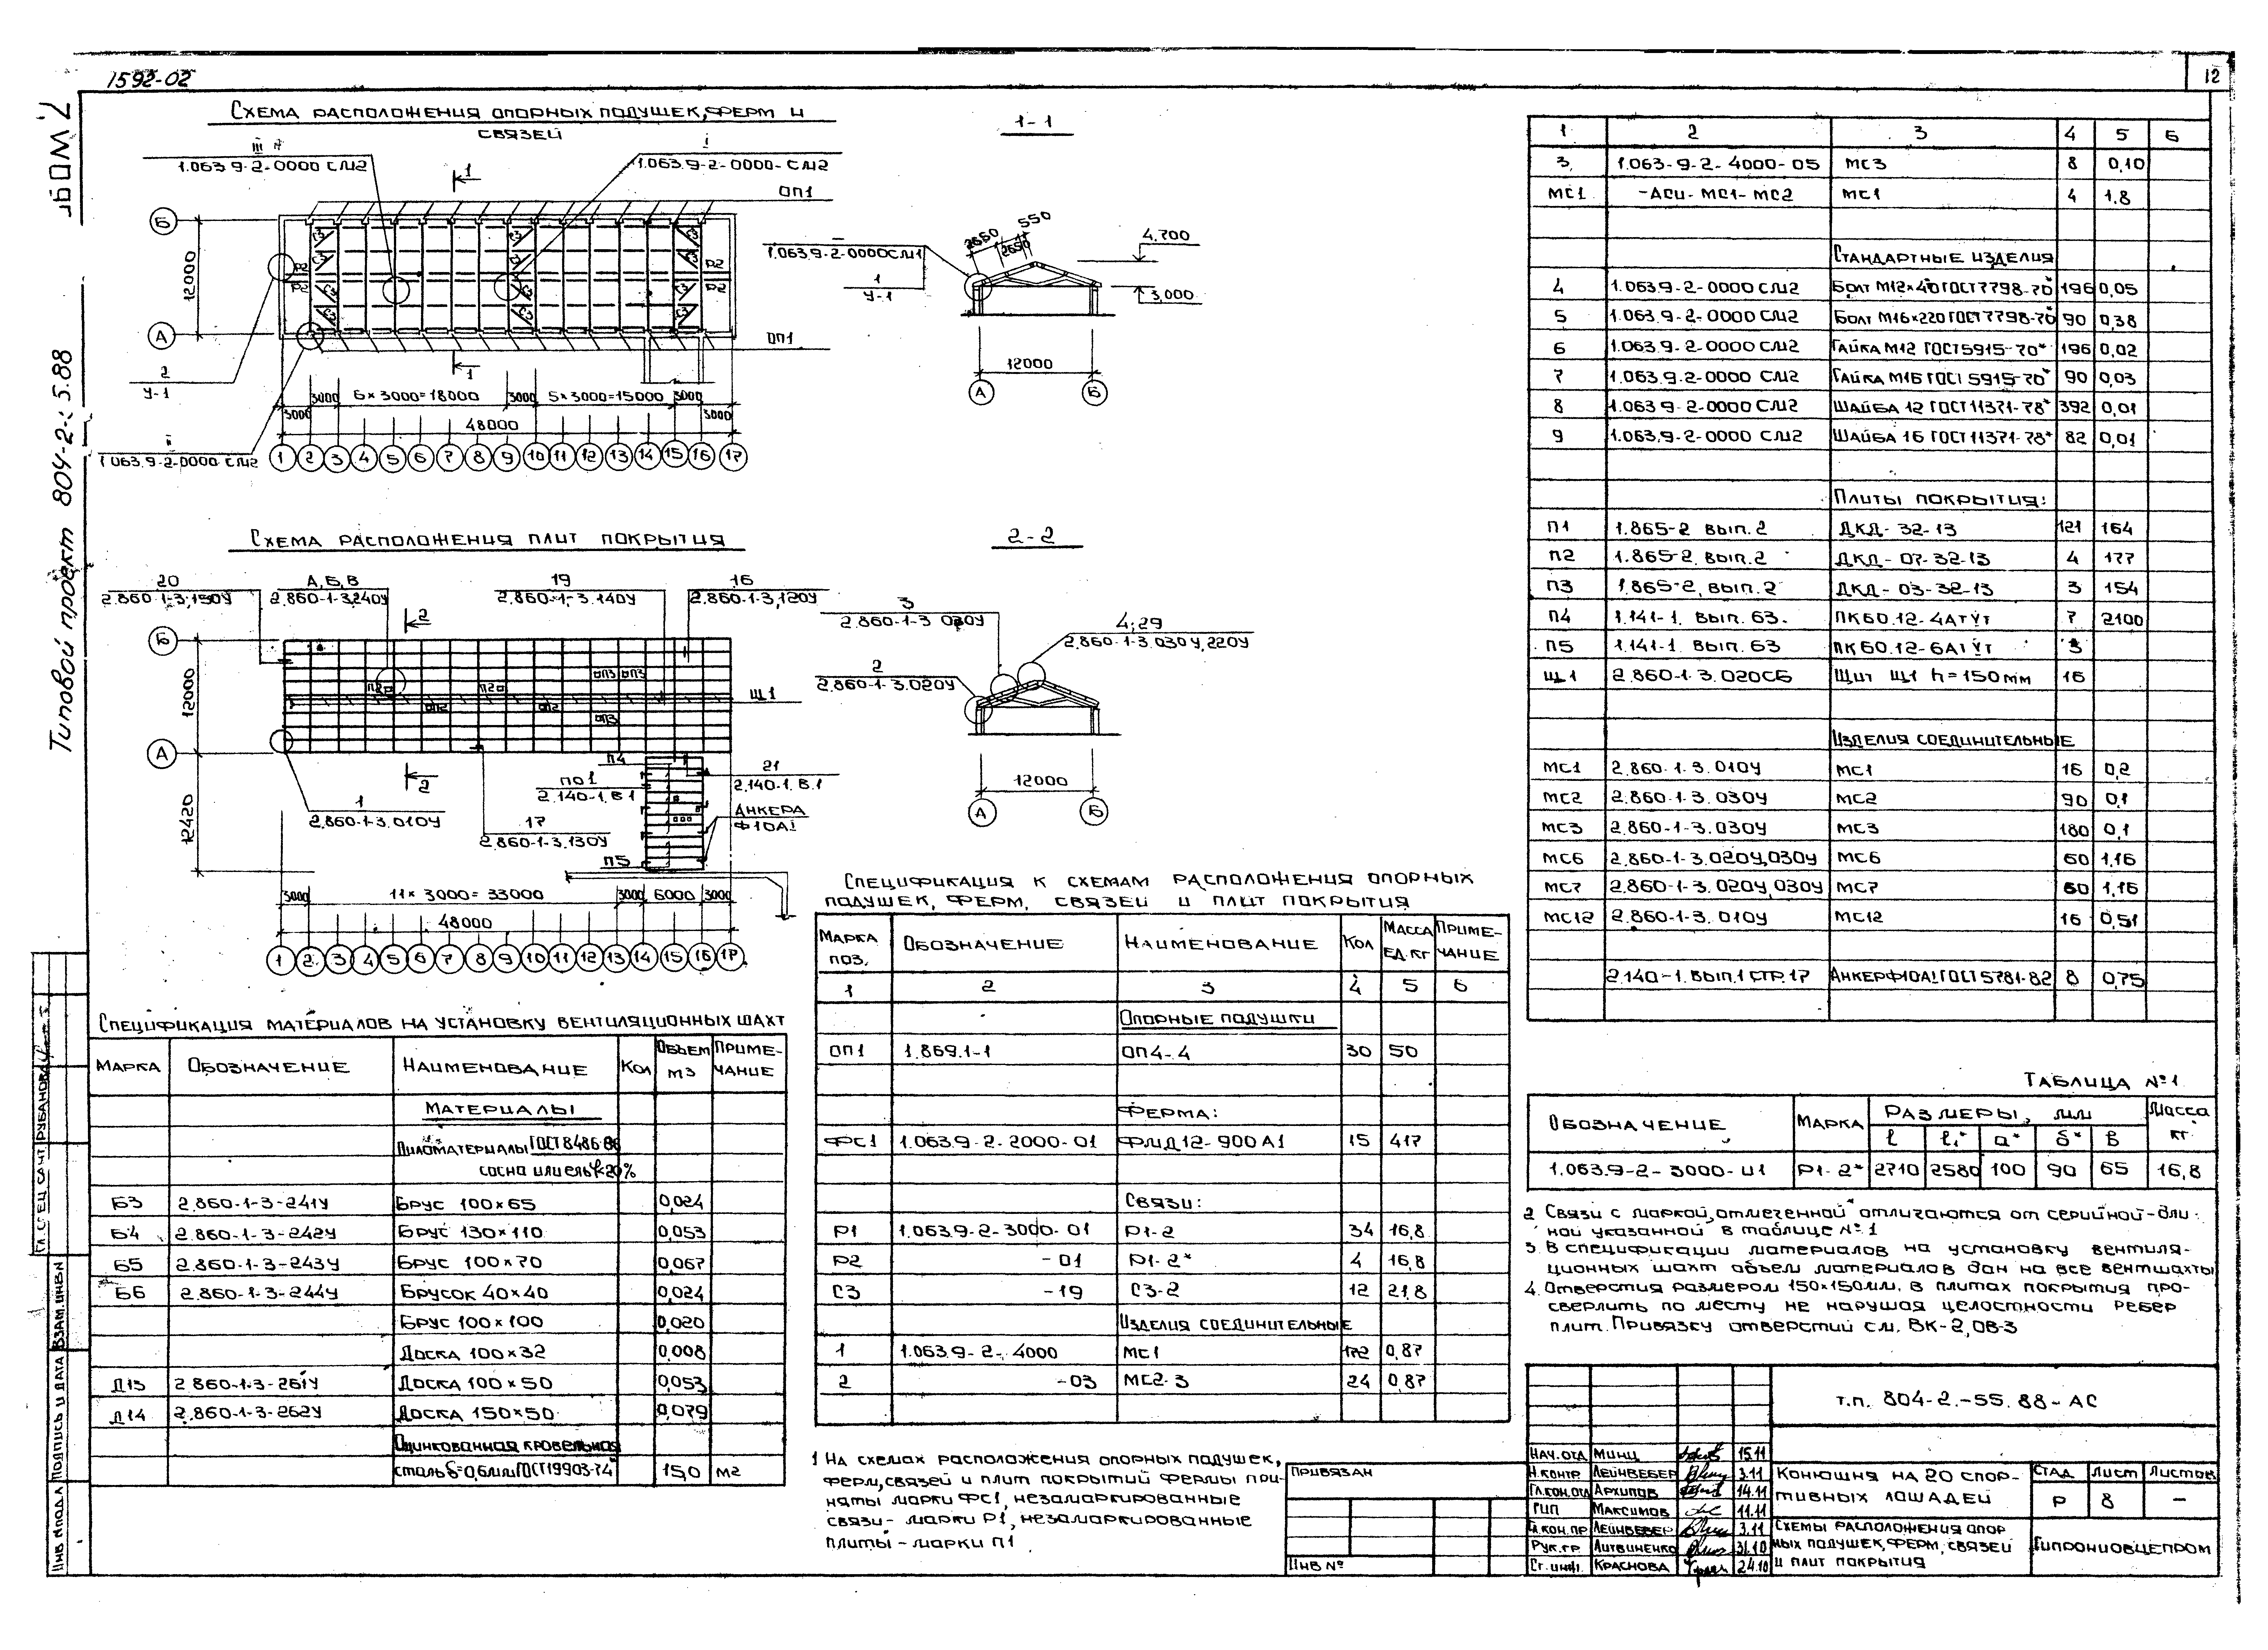 1592-02
12
Альбом 2
Типовой проект 804-2-55.88
Схема расположения опорных подушек, ферм и
связей
III
1.063.9-2-0000 СМ2
I
1.063.9-2-0000-СМ2
1
ОП1
Б
12000
А
Р2 Р2
Р2 Р2
С3 С3 С3
С3 С3 С3
С3 С3 С3
С3 С3 С3
ОП1
2
У-1
1
3000 6×3000=18000 3000 5×3000=15000 3000
3000 3000
48000
II
1.063.9-2-0000 СМ2
1 2 3 4 5 6 7 8 9 10 11 12 13 14 15 16 17
1-1
1.063.9-2-0000СМ1
1
У-1
2650 2650 550
4,700
3,000
12000
А Б
Схема расположения плит покрытия
20
2.860-1-3.150У
А,Б,В
2.860-1-3.240У
19
2.860-1-3.140У
16
2.860-1-3.120У
2
Б
12000
П2 П2 П3 П3
Щ1
П2 П2 П3
А
12420
2
П4
ПО1
2.140-1.В.1
21
2.140-1.В.1
1
2.860-1-3.010У
17
2.860-1-3.130У
Анкера
Ф10АI
П5
3000 11×3000=33000 3000 6000 3000
48000
1 2 3 4 5 6 7 8 9 10 11 12 13 14 15 16 17
2-2
3
2.860-1-3 030У
4;29
2.860-1-3.030У,220У
2
2.860-1-3.020У
12000
А Б
Спецификация материалов на установку вентиляционных шахт
Марка Обозначение Наименование Кол Объем м3 Примечание
Материалы
Пиломатериалы ГОСТ 8486-86
сосна или ель 20%
Б3 2.860-1-3-241У Брус 100×65 0,024
Б4 2.860-1-3-242У Брус 130×110 0,053
Б5 2.860-1-3-243У Брус 100×70 0,067
Б6 2.860-1-3-244У Брусок 40×40 0,024
Брус 100×100 0,020
Доска 100×32 0,008
Д13 2.860-1-3-261У Доска 100×50 0,053
Д14 2.860-1-3-262У Доска 150×50 0,079
Оцинкованная кровельная
сталь δ=0,6мм ГОСТ19903-74 15,0 м2
Спецификация к схемам расположения опорных
подушек, ферм, связей и плит покрытия
Марка поз. Обозначение Наименование Кол Масса ед.кг Примечание
1 2 3 4 5 6
Опорные подушки
ОП1 1.869.1-1 ОП4-4 30 50
Ферма:
ФС1 1.063.9-2-2000-01 ФМД12-900А1 15 417
Связи:
Р1 1.063.9-2-3000-01 Р1-2 34 16,8
Р2 -01 Р1-2* 4 16,8
С3 -19 С3-2 12 21,8
Изделия соединительные
1 1.063.9-2-4000 МС1 172 0,87
2 -03 МС2-3 24 0,87
1 2 3 4 5 6
3 1.063-9-2-4000-05 МС3 8 0,10
МС1 -АСИ-МС1-МС2 МС1 4 1.8
Стандартные изделия
4 1.063.9-2-0000 СМ2 Болт М12×40 ГОСТ 7798-70* 196 0,05
5 1.063.9-2-0000 СМ2 Болт М16×220 ГОСТ 7798-70* 90 0,38
6 1.063.9-2-0000 СМ2 Гайка М12 ГОСТ5915-70* 196 0,02
7 1.063.9-2-0000 СМ2 Гайка М16 ГОСТ 5915-70* 90 0,03
8 1.063 9-2-0000 СМ2 Шайба 12 ГОСТ11371-78* 392 0,01
9 1.063.9-2-0000 СМ2 Шайба 16 ГОСТ11371-78* 82 0,01
Плиты покрытия:
П1 1.865-2 вып.2 ДКД-32-13 121 164
П2 1.865-2 вып.2 ДКД-07-32-13 4 177
П3 1.865-2, вып.2 ДКД-03-32-13 3 154
П4 1.141-1. вып. 63. ПК60.12-4АтVт 7 2100
П5 1.141-1 вып. 63 ПК60.12-6АтVт 3
Щ1 2.860-1-3.020СБ Щит Щ1 h=150мм 16
Изделия соединительные
МС1 2.860-1-3.010У МС1 16 0,2
МС2 2.860-1-3.030У МС2 90 0,1
МС3 2.860-1-3.030У МС3 180 0,1
МС6 2.860-1-3.020У,030У МС6 60 1,16
МС7 2.860-1-3.020У,030У МС7 60 1,16
МС12 2.860-1-3.010У МС12 16 0,51
2.140-1.вып.1 стр.17 Анкер Ф10АI ГОСТ5781-82 8 0,75
Таблица №1
Обозначение Марка Размеры, мм Масса кг.
l l₁* а* б* в
1.063.9-2-3000-И1 Р1-2* 2710 2580 100 90 65 16,8
1 На схемах расположения опорных подушек,
ферм, связей и плит покрытий фермы при-
няты марки ФС1, незамаркированные
связи- марки Р1, незамаркированные
плиты-марки П1
2 Связи с маркой, отмеченной * отличаются от серийной-дли-
ной указанной в таблице №1
3. В спецификации материалов на установку вентиля-
ционных шахт объем материалов дан на все вентшахты
4. Отверстия размером 150×150мм. в плитах покрытия про-
сверлить по месту не нарушая целостности ребер
плит. Привязку отверстий см. ВК-2, ОВ-3
Привязан
Инв №
т.п. 804-2-55.88-АС
Нач.отд Минц 15.11
Н.контр Лейнвебер 3.11
Гл.кон.отд Архипов 14.11
ГИП Максимов 11.11
Гл.кон.пр Лейнвебер 3.11
Рук.гр Литвиненко 31.10
Ст.инж. Краснова 24.10
Конюшня на 20 спор-
тивных лошадей
Стад Лист Листов
Р 8 -
Схемы расположения опор
ных подушек, ферм, связей
и плит покрытия
Гипронисельпром
Гл.спец сант Рубанова
Взам.инв№
Подпись и дата
Инв №подл